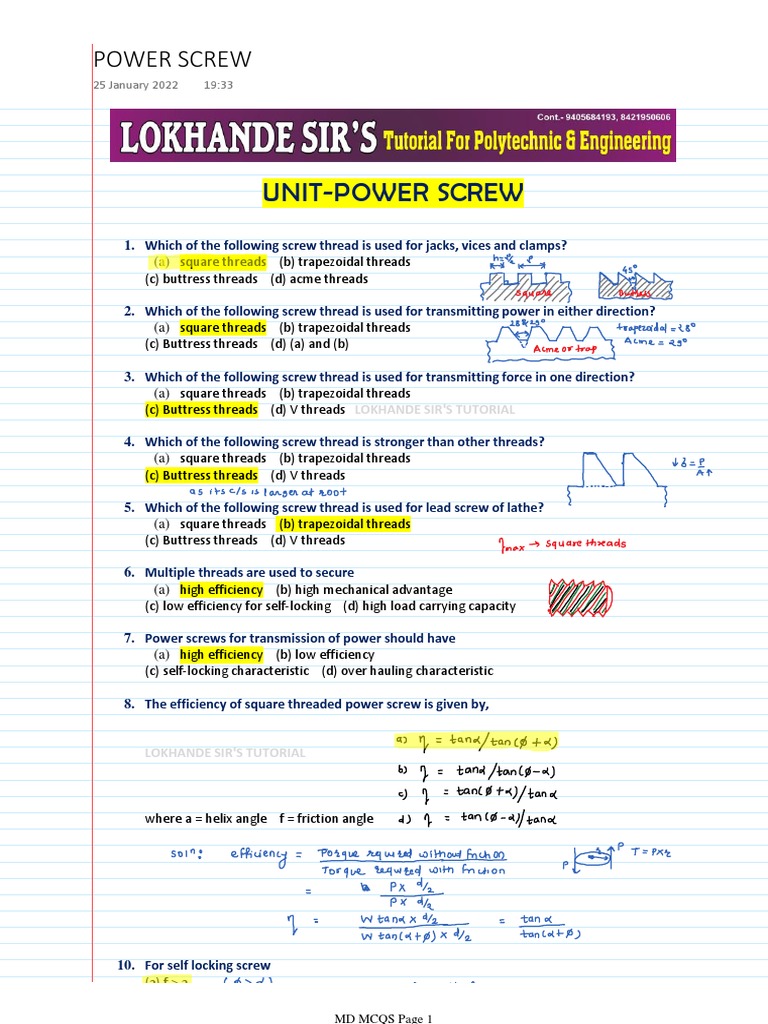 POWER SCREW
25 January 2022 19:33
Cont.- 9405684193, 8421950606
LOKHANDE SIR'S Tutorial For Polytechnic & Engineering
UNIT-POWER SCREW
1. Which of the following screw thread is used for jacks, vices and clamps?
(a) square threads (b) trapezoidal threads
(c) buttress threads (d) acme threads
h=P/2 P 45°
square
2. Which of the following screw thread is used for transmitting power in either direction?
(a) square threads (b) trapezoidal threads
(c) Buttress threads (d) (a) and (b)
trapezoidal = 28°
Acme = 29°
Acme or trap
3. Which of the following screw thread is used for transmitting force in one direction?
(a) square threads (b) trapezoidal threads
(c) Buttress threads (d) V threads LOKHANDE SIR'S TUTORIAL
4. Which of the following screw thread is stronger than other threads?
(a) square threads (b) trapezoidal threads
(c) Buttress threads (d) V threads
as its c/s is larger at root
↓ = P/A↑
5. Which of the following screw thread is used for lead screw of lathe?
(a) square threads (b) trapezoidal threads
(c) Buttress threads (d) V threads
ηmax → square threads
6. Multiple threads are used to secure
(a) high efficiency (b) high mechanical advantage
(c) low efficiency for self-locking (d) high load carrying capacity
7. Power screws for transmission of power should have
(a) high efficiency (b) low efficiency
(c) self-locking characteristic (d) over hauling characteristic
8. The efficiency of square threaded power screw is given by,
a) η = tanα/tan(ø+α)
LOKHANDE SIR'S TUTORIAL
b) η = tanα/tan(ø-α)
c) η = tan(ø+α)/tanα
where a = helix angle f = friction angle d) η = tan(ø-α)/tanα
soln: efficiency = Torque required without friction
Torque required with friction
P P r T = P×r
= P× d/2
P× d/2
η = W tanα × d/2 = tanα
W tan(α+ø) × d/2 tan(α+ø)
10. For self locking screw
(a) f > a (ø>α)
MD MCQS Page 1